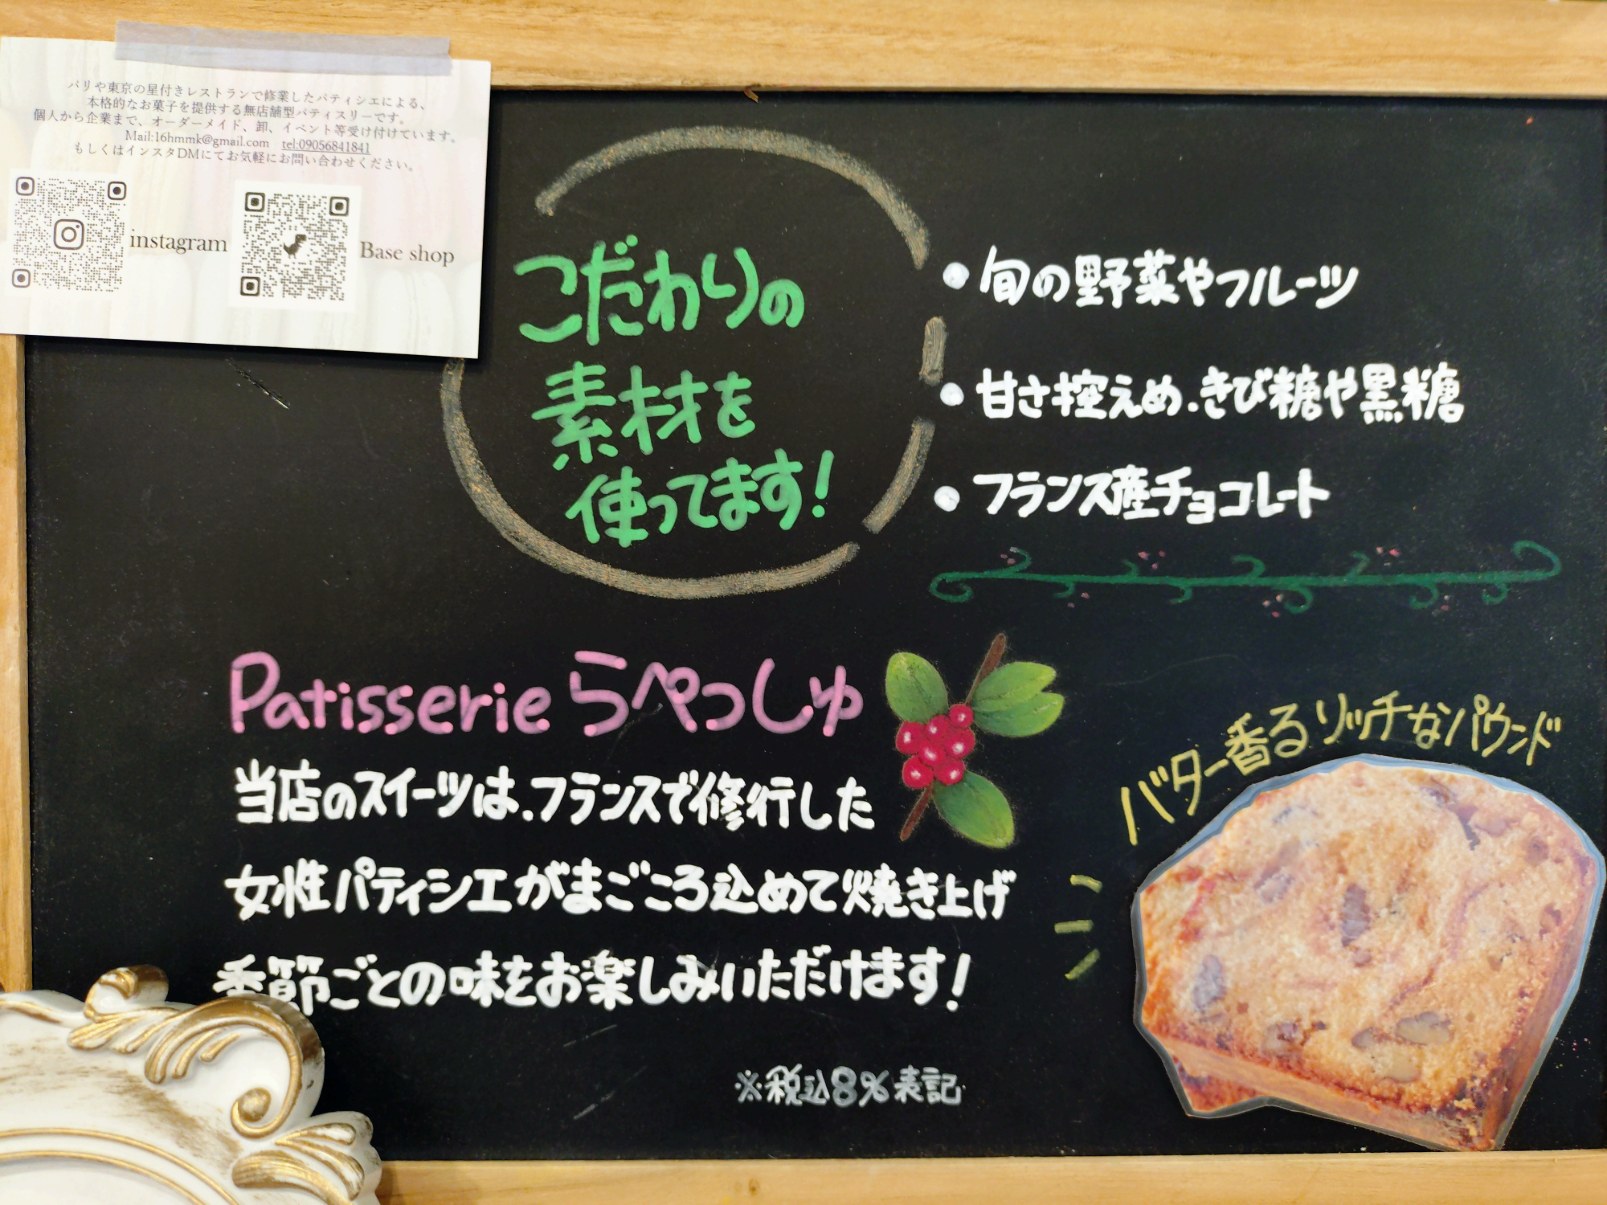 パリや東京の星付きレストランで修業したパティシエによる、
本格的なお菓子を提供する無店舗型パティスリーです。
個人から企業まで、オーダーメイド、卸、イベント等受け付けています。
Mail:16hmmk@gmail.com tel:09056841841
もしくはインスタDMにてお気軽にお問い合わせください。
instagram
Base shop
こだわりの
素材を
使ってます!
・旬の野菜やフルーツ
・甘さ控えめ.きび糖や黒糖
・フランス産チョコレート
Patisserie らぺっしゅ
当店のスイーツは、フランスで修行した
女性パティシエがまごころ込めて焼き上げ
季節ごとの味をお楽しみいただけます!
バター香るリッチなパウンド
※税込8%表記